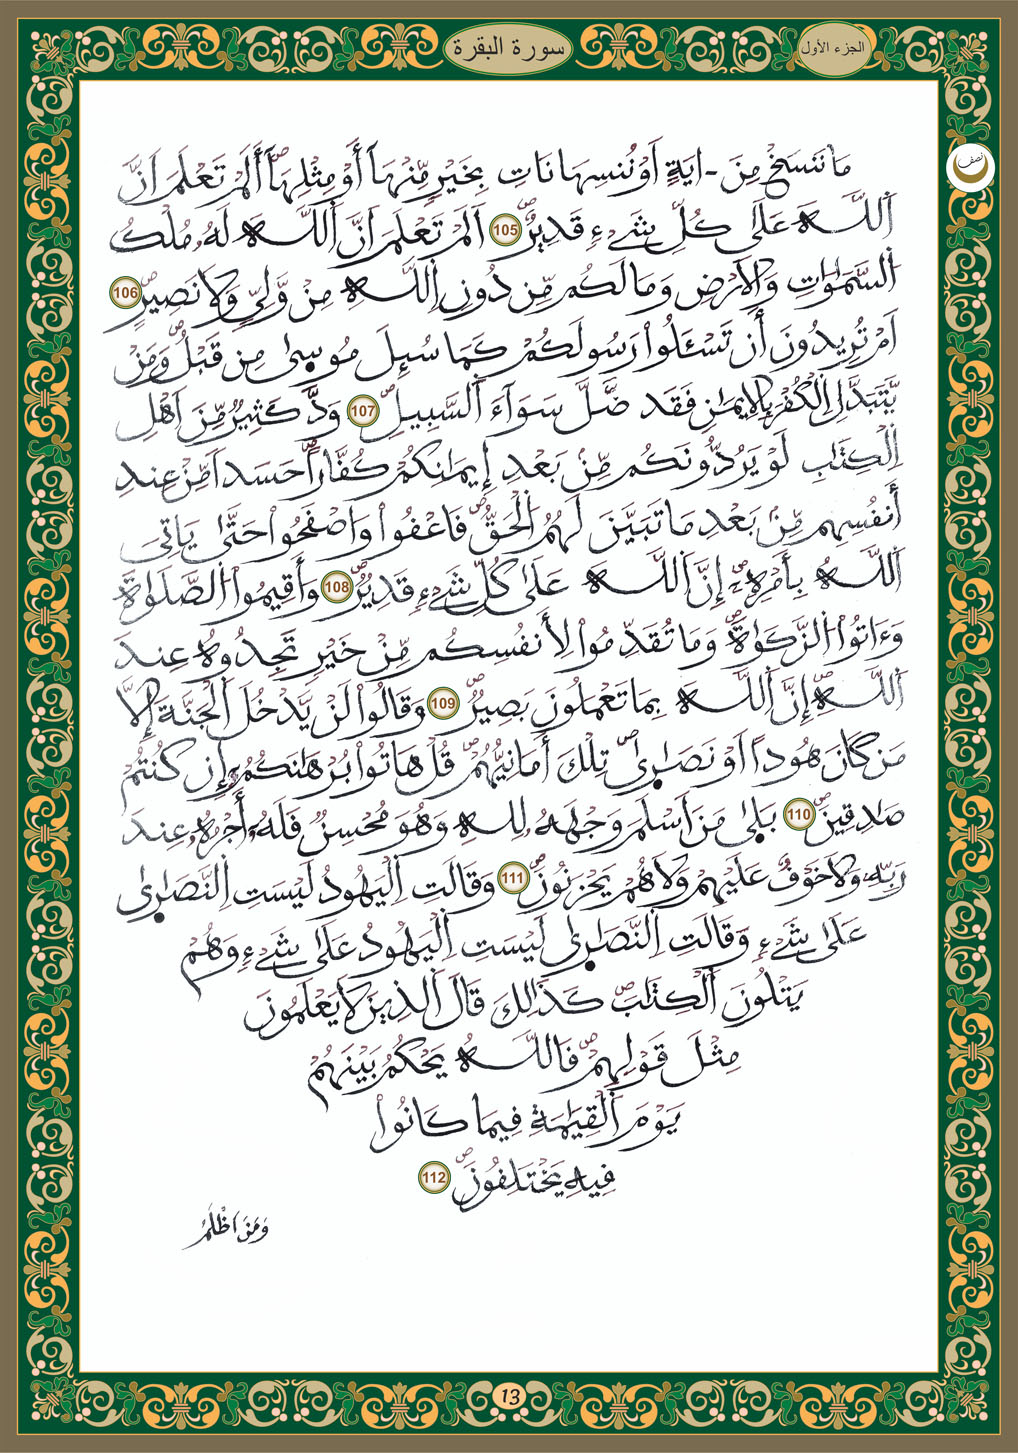 الجزء الأول
سورة البقرة
نصف
مَا نَنسَخْ مِنَ ـايَةٍ اَوْ نُنسِهَا نَاتِ بِخَيْرٍ مِّنْهَآ أَوْ مِثْلِهَآ أَلَمْ تَعْلَمَ اَنَّ
اَللَّهَ عَلَىٰ كُلِّ شَےْءٖ قَدِيرٌ 105 اَلَمْ تَعْلَمَ اَنَّ اَللَّهَ لَهُۥ مُلْكُ
اُلسَّمَٰوَٰتِ وَالَارْضِ وَمَا لَكُم مِّن دُونِ اِللَّهِ مِنْ وَّلِيّٖ وَلَا نَصِيرٍ 106
اَمْ تُرِيدُونَ أَن تَسْـَٔلُواْ رَسُولَكُمْ كَمَا سُئِلَ مُوسِىٰ مِن قَبْلُ وَمَنْ
يَّتَبَدَّلِ اِلْكُفْرَ بِالِايمَٰنِ فَقَد ضَّلَّ سَوَآءَ اَلسَّبِيلِ 107 وَدَّ كَثِيرٌ مِّنَ اَهْلِ
اِلْكِتَٰبِ لَوْ يَرُدُّونَكُم مِّنۢ بَعْدِ إِيمَٰنِكُمْ كُفَّاراً حَسَداً مِّنْ عِندِ
أَنفُسِهِم مِّنۢ بَعْدِ مَا تَبَيَّنَ لَهُمُ اُلْحَقُّ فَاعْفُواْ وَاصْفَحُواْ حَتَّىٰ يَاتِيَ
اَللَّهُ بِأَمْرِهِۦٓ إِنَّ اَللَّهَ عَلَىٰ كُلِّ شَےْءٖ قَدِيرٌ 108 وَأَقِيمُواْ اُلصَّلَوٰةَ
وَءَاتُواْ اُلزَّكَوٰةَ وَمَا تُقَدِّمُواْ لِأَنفُسِكُم مِّنْ خَيْرٖ تَجِدُوهُ عِندَ
اَللَّهِ إِنَّ اَللَّهَ بِمَا تَعْمَلُونَ بَصِيرٌ 109 وَقَالُواْ لَنْ يَّدْخُلَ اَلْجَنَّةَ إِلَّا
مَن كَانَ هُوداً اَوْ نَصَٰرِىٰ تِلْكَ أَمَانِيُّهُمْ قُلْ هَاتُواْ بُرْهَٰنَكُمُۥٓ إِن كُنتُمْ
صَٰدِقِينَ 110 بَلَىٰ مَنَ اَسْلَمَ وَجْهَهُۥ لِلهِ وَهُوَ مُحْسِنٌ فَلَهُۥٓ أَجْرُهُۥ عِندَ
رَبِّهِۦ وَلَا خَوْفٌ عَلَيْهِمْ وَلَا هُمْ يَحْزَنُونَ 111 وَقَالَتِ اِلْيَهُودُ لَيْسَتِ اِلنَّصَٰرِىٰ
عَلَىٰ شَےْءٖ وَقَالَتِ اِلنَّصَٰرِىٰ لَيْسَتِ اِلْيَهُودُ عَلَىٰ شَےْءٖ وَهُمْ
يَتْلُونَ اَلْكِتَٰبَ كَذَٰلِكَ قَالَ اَلذِينَ لَا يَعْلَمُونَ
مِثْلَ قَوْلِهِمْ فَاللَّهُ يَحْكُمُ بَيْنَهُمْ
يَوْمَ اَلْقِيَٰمَةِ فِيمَا كَانُواْ
فِيهِ يَخْتَلِفُونَ 112
وَمَنَ اَظْلَمُ
13